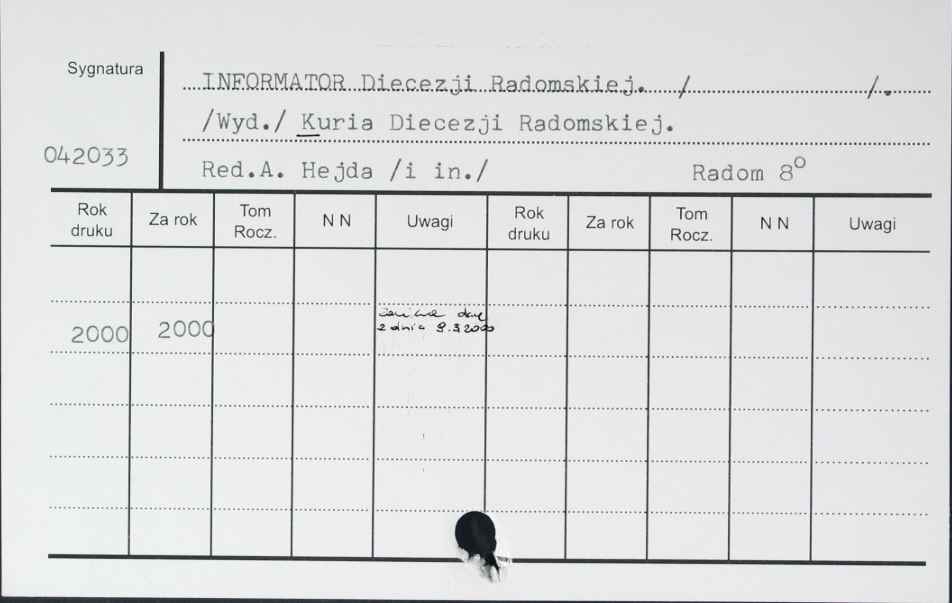 Sygnatura
INFORMATOR Diecezji Radomskiej. / /.
/Wyd./ Kuria Diecezji Radomskiej.
042033
Red.A. Hejda /i in./ Radom 8°
Rok druku Za rok Tom Rocz. N N Uwagi Rok druku Za rok Tom Rocz. N N Uwagi
2000 2000
z dnia 9.3.2000